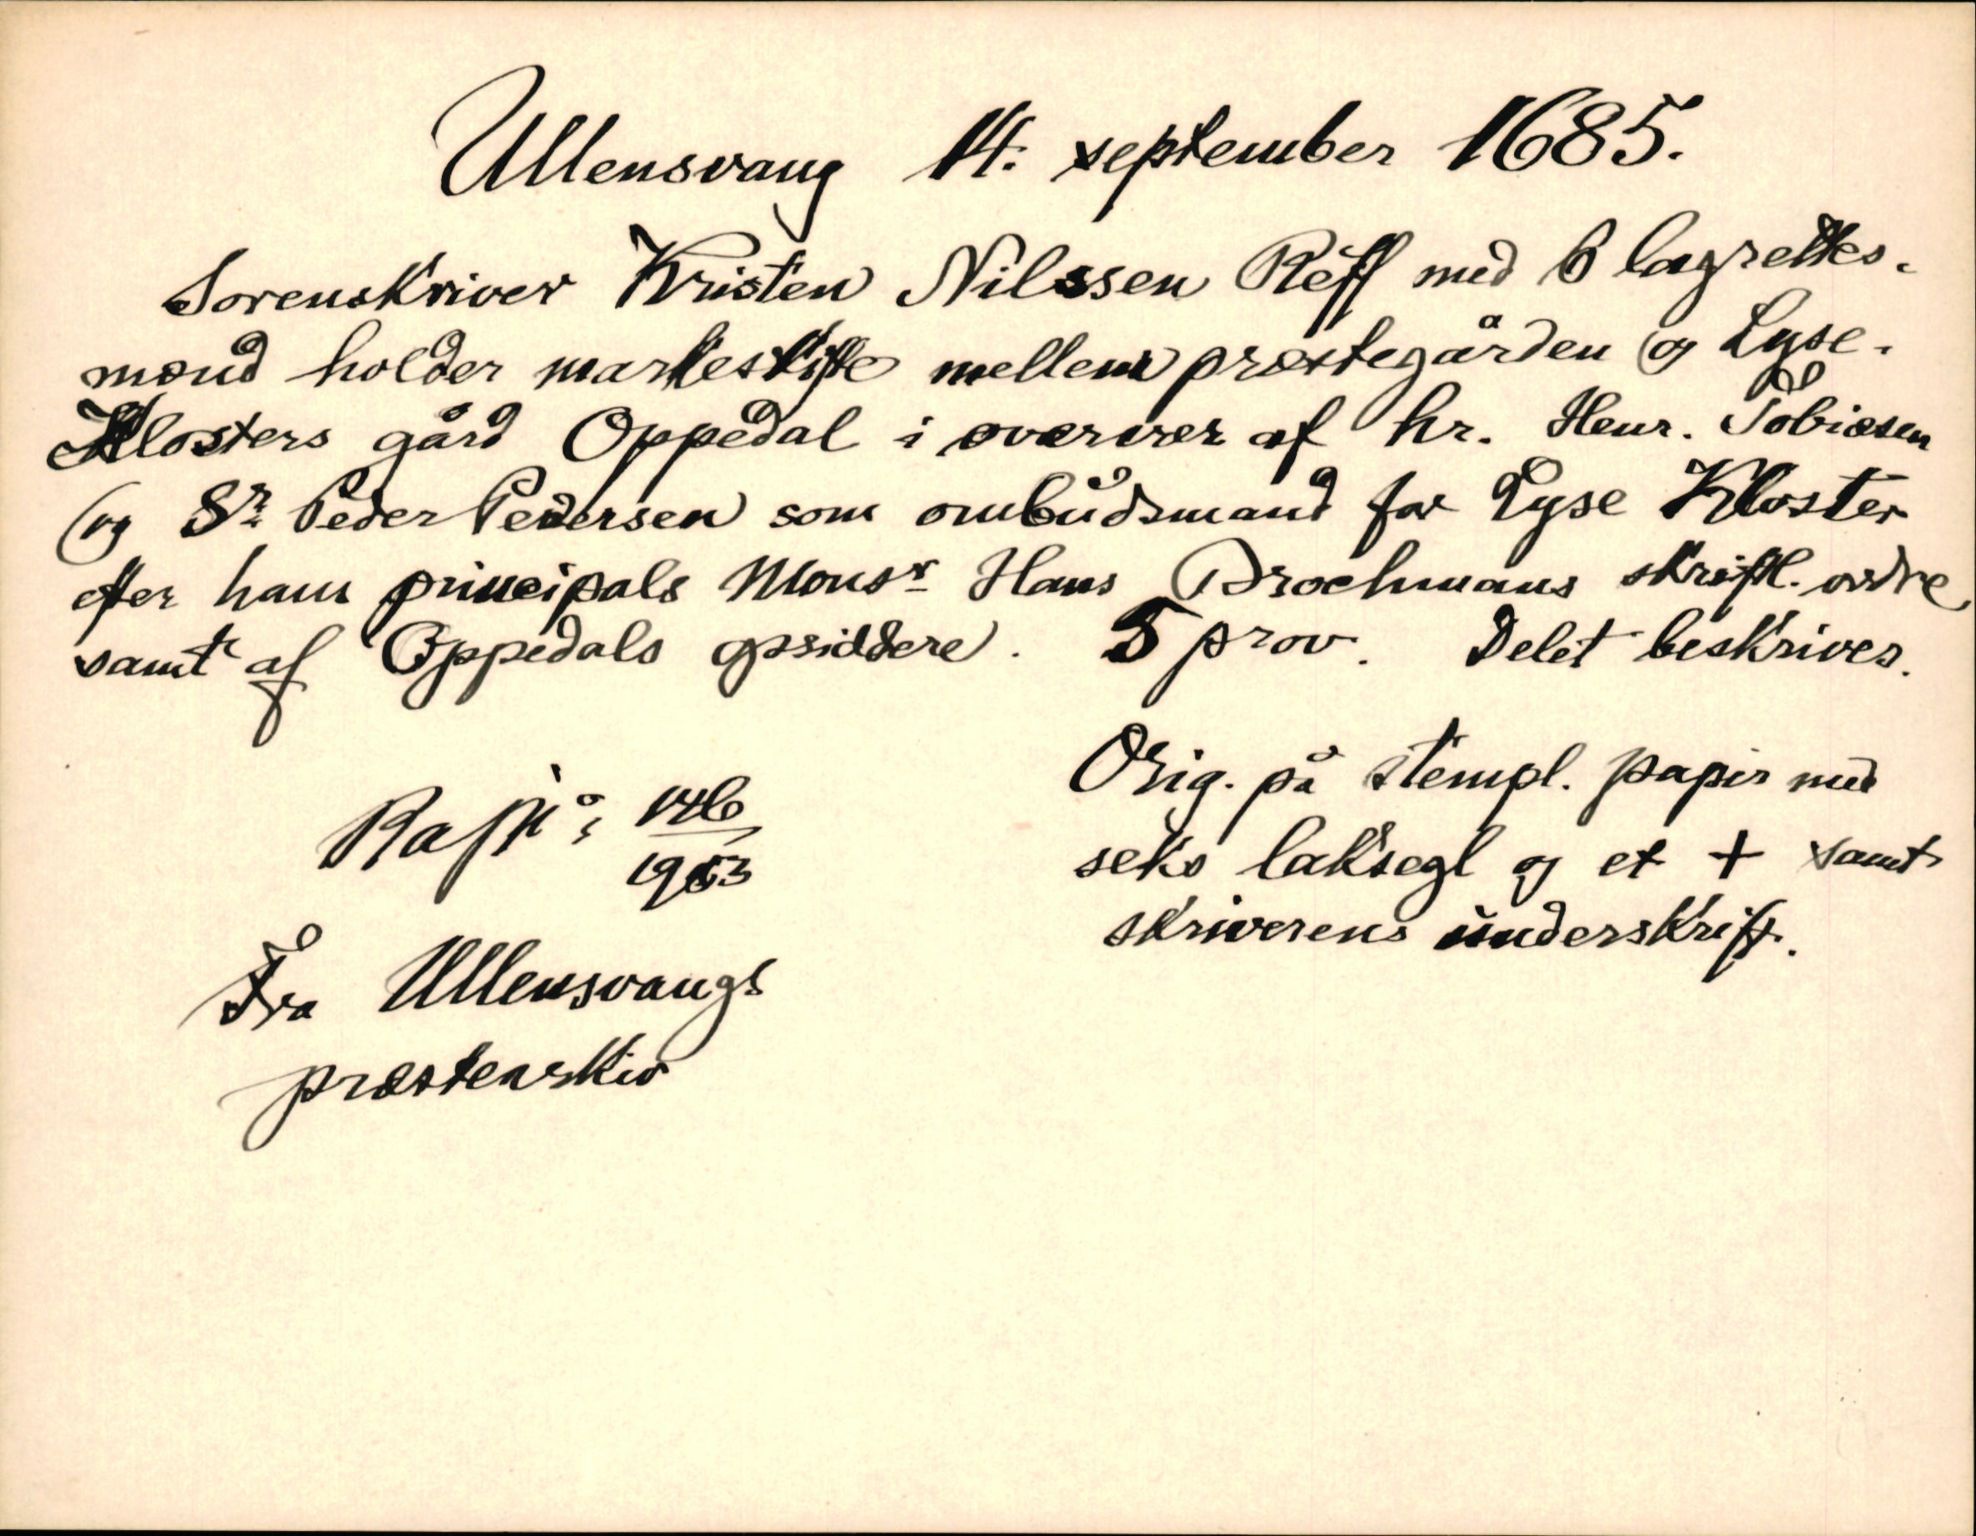 Ullensvang 14. september 1685.
Sorenskriver Kristen Nilssen Reff med 6 lagrettes-
mænd holder markeskifte mellem præstegården og Lyse-
Klosters gård Oppedal i overvær af hr. Henr. Tobiæsen
og Sr. Peder Pedersen som ombudsmand for Lyse Kloster
efter hans principals Monsr Hans Brochmans skriftl. ordre
samt af Oppedals opsiddere. 5 prov. Delet beskrives.
Orig. på stempl. papir med
seks laksegl og et + samt
skriverens underskrift.
146
Fra Ullensvangs
præstearkiv